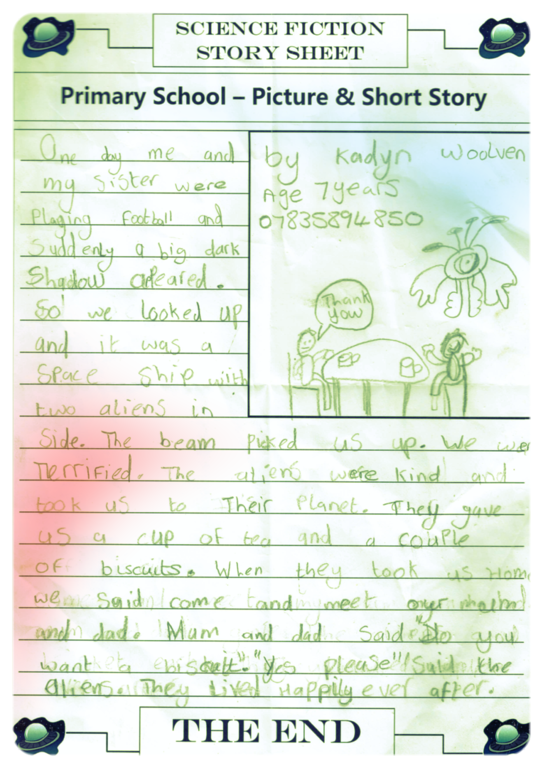 SCIENCE FICTION
STORY SHEET
Primary School – Picture & Short Story
One day me and
my sister were
Playing football and
Suddenly a big dark
Shadow apeared.
So we looked up
and it was a
Space Ship with
two aliens in
by Kadyn Woolven
Age 7 years
07835894850
Thank
you
Side. The beam picked us up. We wer
Terrified. The aliens were kind and
took us to Their Planet. They gave
us a cup of tea and a couple
of biscuits. When they took us Hom
we said come and meet our
and dad. Mum and dad Said "Do you
want a biscuit." "Yes please" Said the
aliens. They lived Happily ever after.
THE END